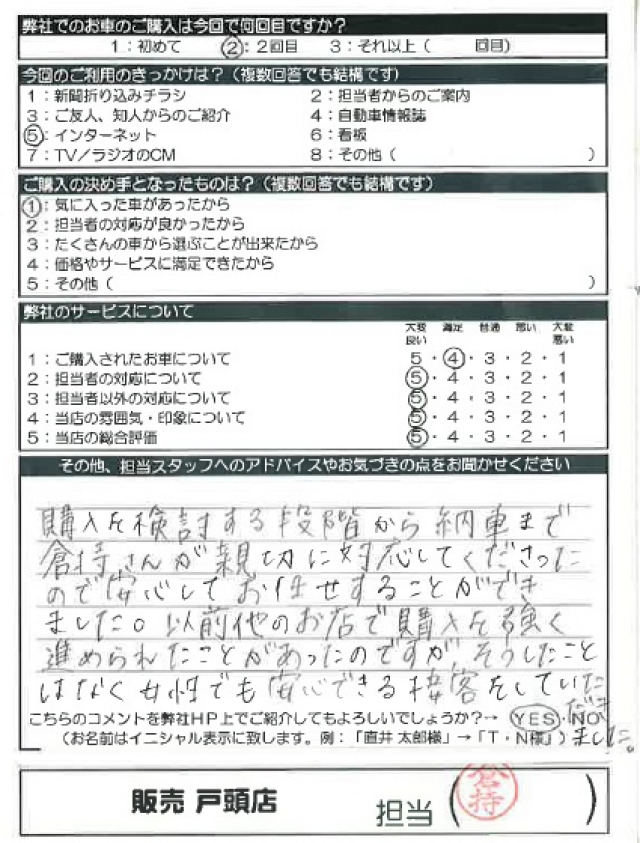 弊社でのお車のご購入は今回で何回目ですか？
1：初めて 2：2回目 3：それ以上（ 回目）
今回のご利用のきっかけは？（複数回答でも結構です）
1：新聞折り込みチラシ 2：担当者からのご案内
3：ご友人、知人からのご紹介 4：自動車情報誌
5：インターネット 6：看板
7：TV／ラジオのCM 8：その他（ ）
ご購入の決め手となったものは？（複数回答でも結構です）
1：気に入った車があったから
2：担当者の対応が良かったから
3：たくさんの車から選ぶことが出来たから
4：価格やサービスに満足できたから
5：その他（ ）
弊社のサービスについて
大変良い 満足 普通 悪い 大変悪い
1：ご購入されたお車について 5・4・3・2・1
2：担当者の対応について 5・4・3・2・1
3：担当者以外の対応について 5・4・3・2・1
4：当店の雰囲気・印象について 5・4・3・2・1
5：当店の総合評価 5・4・3・2・1
その他、担当スタッフへのアドバイスやお気づきの点をお聞かせください
購入を検討する段階から納車まで
倉持さんが親切に対応してくださった
ので安心しておまかせすることができ
ました。以前他のお店で購入を強く
進められたことがあったのですがそうしたこと
はなく女性でも安心できる接客をしていた
だきました。
こちらのコメントを弊社HP上でご紹介してもよろしいでしょうか？→ YES・NO
（お名前はイニシャル表示に致します。例：「直井 太郎様」→「T・N様」）
販売 戸頭店 担当（倉持）